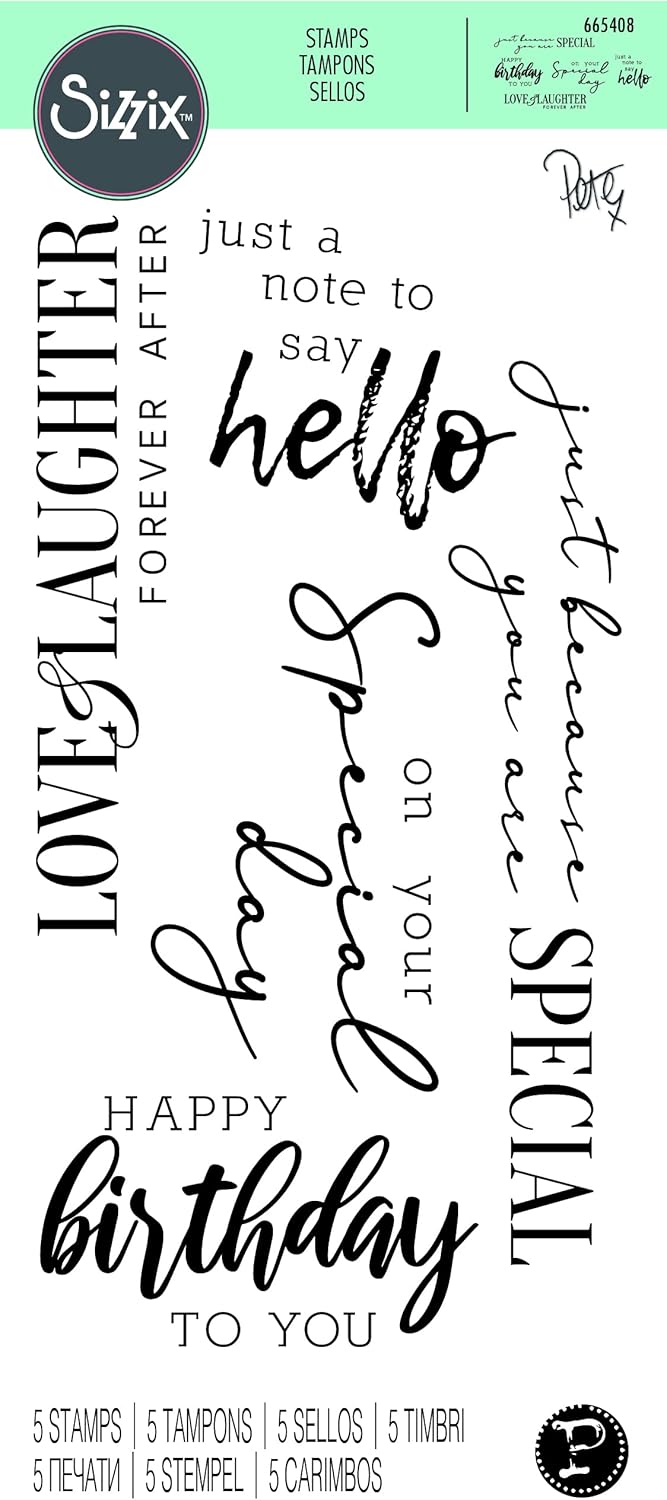 Sizzix™
STAMPS
TAMPONS
SELLOS
665408
just because
you are SPECIAL
HAPPY
birthday
TO YOU
on your
Special
day
just a
note to
say
hello
LOVE & LAUGHTER
FOREVER AFTER
Pete x
LOVE & LAUGHTER
FOREVER AFTER
just a
note to
say
hello
just because
you are SPECIAL
on your
Special
day
HAPPY
birthday
TO YOU
5 STAMPS | 5 TAMPONS | 5 SELLOS | 5 TIMBRI
5 ПЕЧАТИ | 5 STEMPEL | 5 CARIMBOS